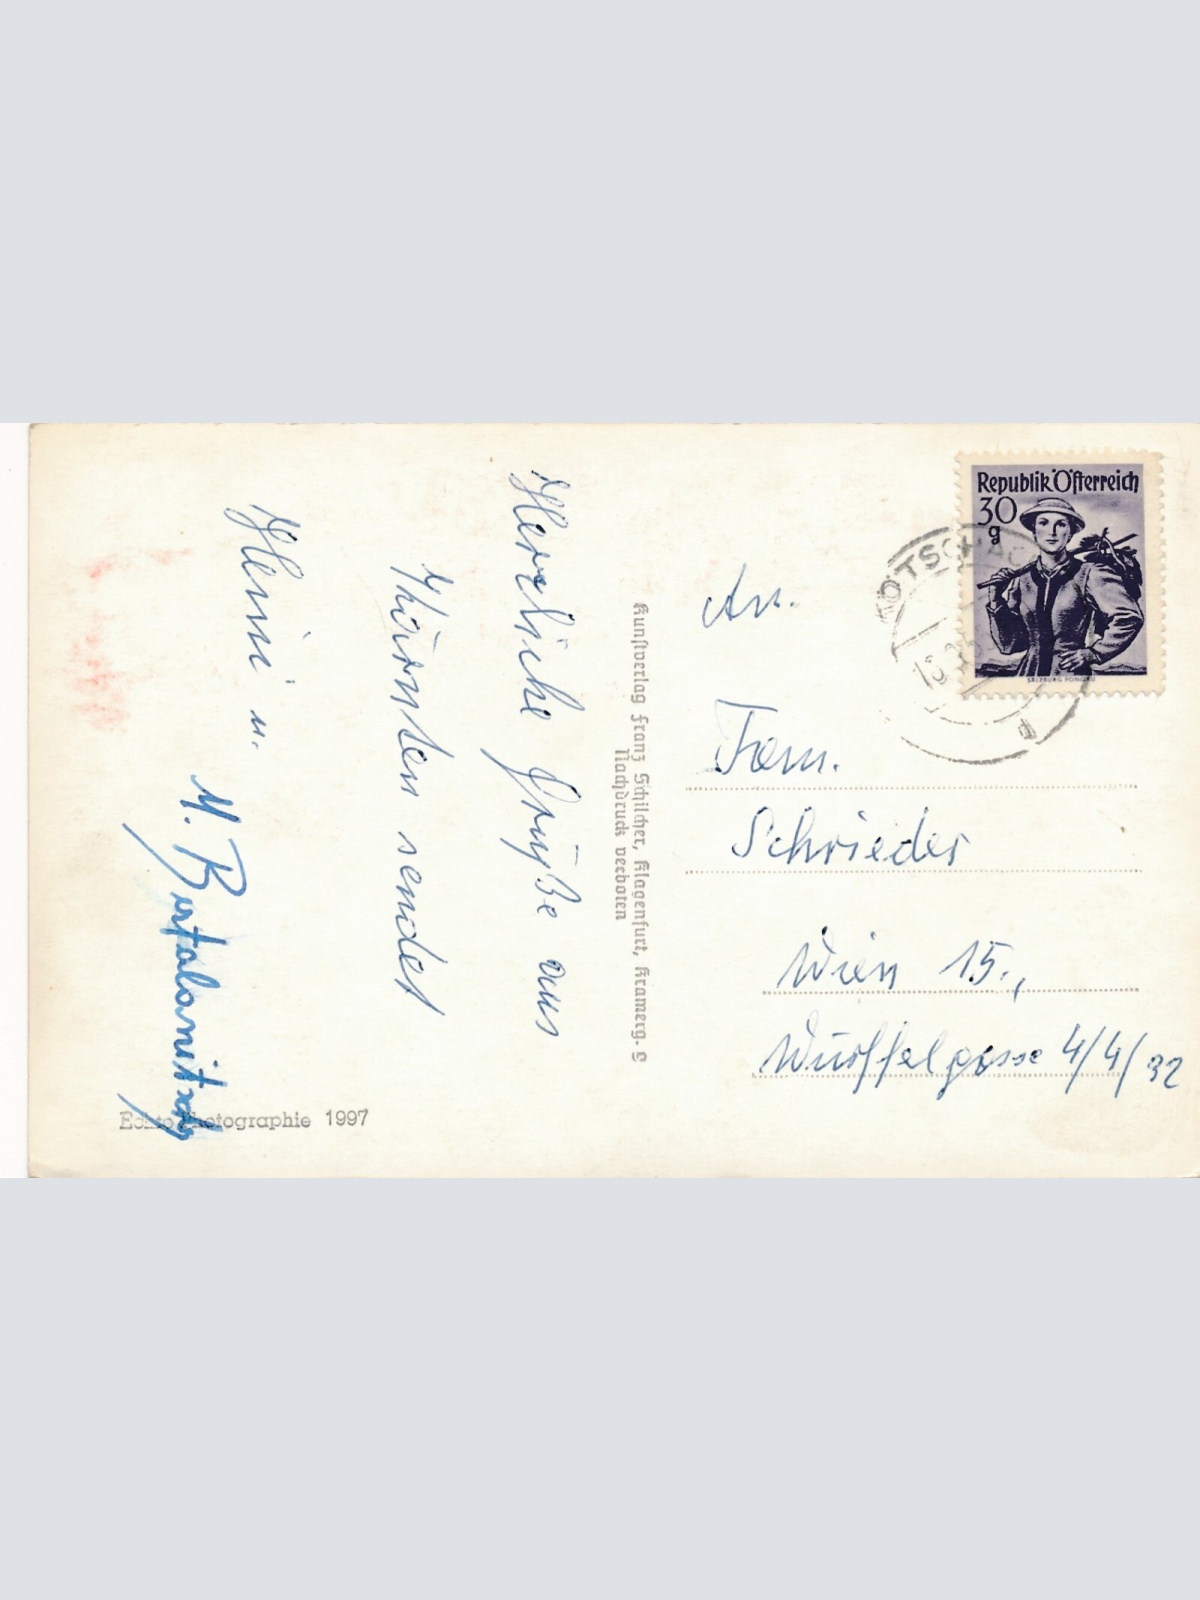 Herzliche Grüße aus
Kärnten sendet
Heini u.
M. Bertalanitsch
Echte Photographie 1997
Kunstverlag Franz Schilcher, Klagenfurt, Kramerg. 9
Nachdruck verboten
Republik Österreich
30
g
SALZBURG PONGAU
KÖTSCHAC
An.
Fam.
Schrieder
Wien 15.,
Wurffelgasse 4/4/32